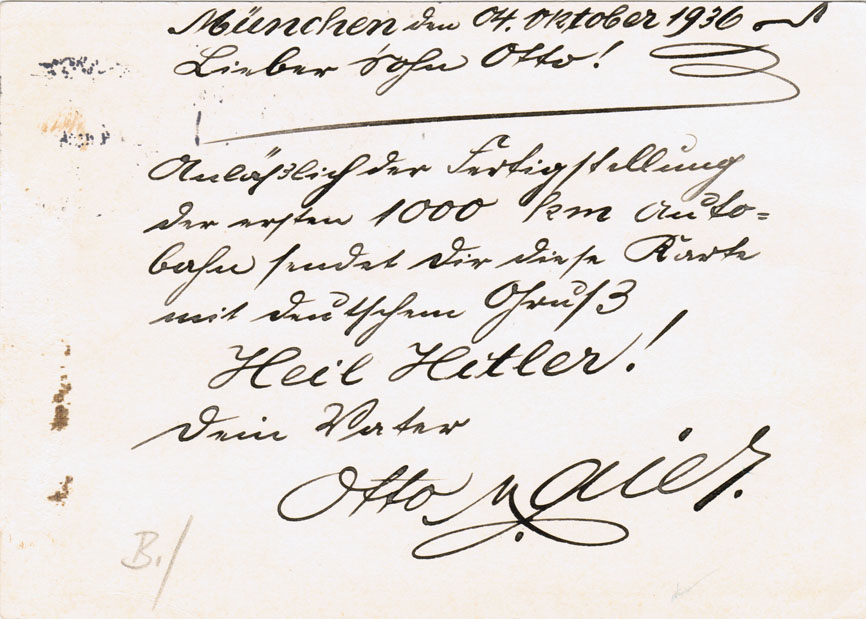 München den 04. Oktober 1936
Lieber Sohn Otto!
Anläßlich der Fertigstellung
der ersten 1000 km Auto=
bahn sendet Dir diese Karte
mit deutschem Gruß
Heil Hitler!
Dein Vater
Otto Maier.
B./